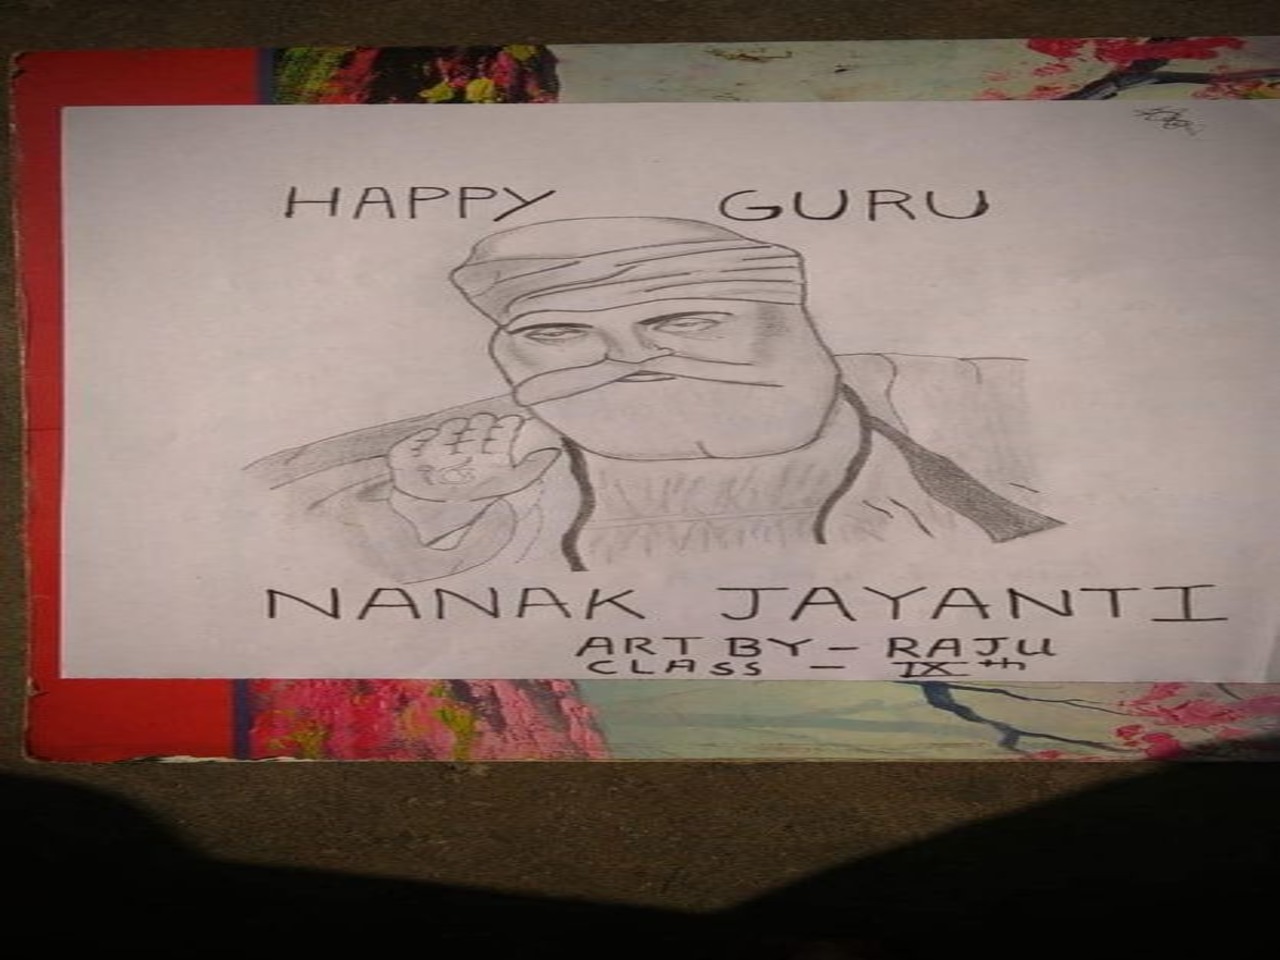 HAPPY GURU
NANAK JAYANTI
ART BY - RAJU
CLASS - IXth